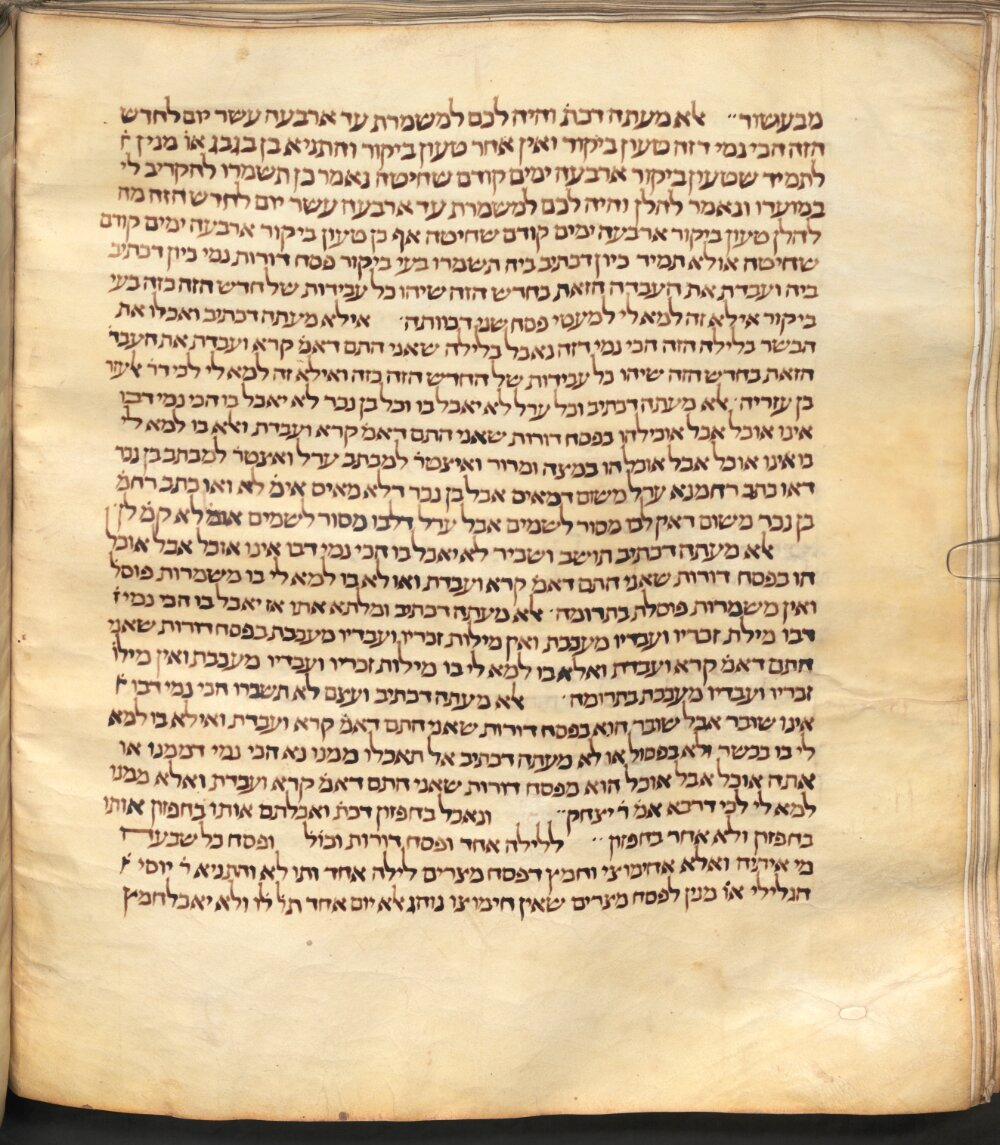 מבעשור״ אלא מעתה דכת׳ והיה לכם למשמרת עד ארבעה עשר יום לחדש
הזה הכי נמי דזה טעון ביקור ואין אחר טעון ביקור והתניא בן בגבג או׳ מנין
לתמיד שטעון ביקור ארבעה ימים קודם שחיטה נאמר כן תשמרו להקריב לי
במועדו ונאמר להלן והיה לכם למשמרת עד ארבעה עשר יום לחדש הזה מה
להלן טעון ביקור ארבעה ימים קודם שחיטה אף כן טעון ביקור ארבעה ימים קודם
שחיטה אולא תמיד כיון דכתיב ביה תשמרו בעי ביקור פסח דורות נמי כיון דכתיב
ביה ועבדת את העבדה הזאת בחדש הזה שיהו כל עבידות של חדש הזה כזה בעי
ביקור אילא זה למאלי למעטי פסח שני דכוותה׳ אילא מעתה דכתיב ואכלו את
הבשר בלילה הזה הכי נמי דזה נאכל בלילה שאני התם דאמ׳ קרא ועבדת את העבד׳
הזאת בחדש הזה שיהו כל עבידות של החדש הזה כזה ואילא זה למאלי לכי דר׳ אלעזר
בן עזריה׳ אלא מעתה דכתיב וכל ערל לא יאכל בו וכל בן נכר לא יאכל בו הכי נמי דבו
אינו אוכל אבל אוכילהו בפסח דורות שאני התם דאמ׳ קרא ועבדת ואלא בו למאלי
בו אינו אוכל אבל אוכל הו במצה ומרור ואיצטר׳ למכתב ערל ואצטר׳ למכתב בן נכר
דאו כתב רחמנא ערל משום דמאיס אבל בן נכר דלא מאיס אימ׳ לא ואו כתב רחמ׳
בן נכר משום דאין לבו מסור לשמים אבל ערל דלבו מסור לשמים אימ׳ לא קמ׳ לן
אלא מעתה דכתיב תושב ושכיר לא יאכל בו הכי נמי דבו אינו אוכל אבל אוכל
הו בפסח דורות שאני התם דאמ׳ קרא ועבדת ואו לא בו למאלי בו משמרות פוסל׳
ואין משמרות פוסלת בתרומה׳ אלא מעתה דכתיב ומלתא אתו אז יאכל בו הכי נמי
דבו מילת זכריו ועבדיו מעכבת ואין מילות זכריו ועבדיו מעכבת בפסח דורות שאני
התם דאמ׳ קרא ועבדת ואלא בו למאלי בו מילות זכריו ועבדיו מעכבת ואין מילו׳
זכריו ועבדיו מעכבת בתרומה׳ אלא מעתה דכתיב ועצם לא תשברו הכי נמי דבו
אינו שובר אבל שובר הוא בפסח דורות שאני התם דאמ׳ קרא ועבדת ואילא בו למא
לי בו בכשר ולא בפסול או לא מעתה דכתיב אל תאכלו ממנו נא הכי נמי דממנו או
אתה אוכל אבל אוכל הוא בפסח דורות שאני התם דאמ׳ קרא ועבדת ואלא ממנו
למאלי לכי דרבא אמ׳ ר׳ יצחק״ ונאכל בחפזון דכת׳ ואכלתם אותו בחפזון אותו
בחפזון ולא אחר בחפזון״ ללילה אחד ופסח דורות וכול׳ ופסח כל שבעה
מי איכה ואלא אחימוצי וחמץ דפסח מצרים לילה אחד ותו לא והתניא ר׳ יוסי
הגלילי או׳ מנין לפסח מצרים שאין חימוצו נוהג אלא יום אחד תל׳ לו׳ ולא יאכל חמץ